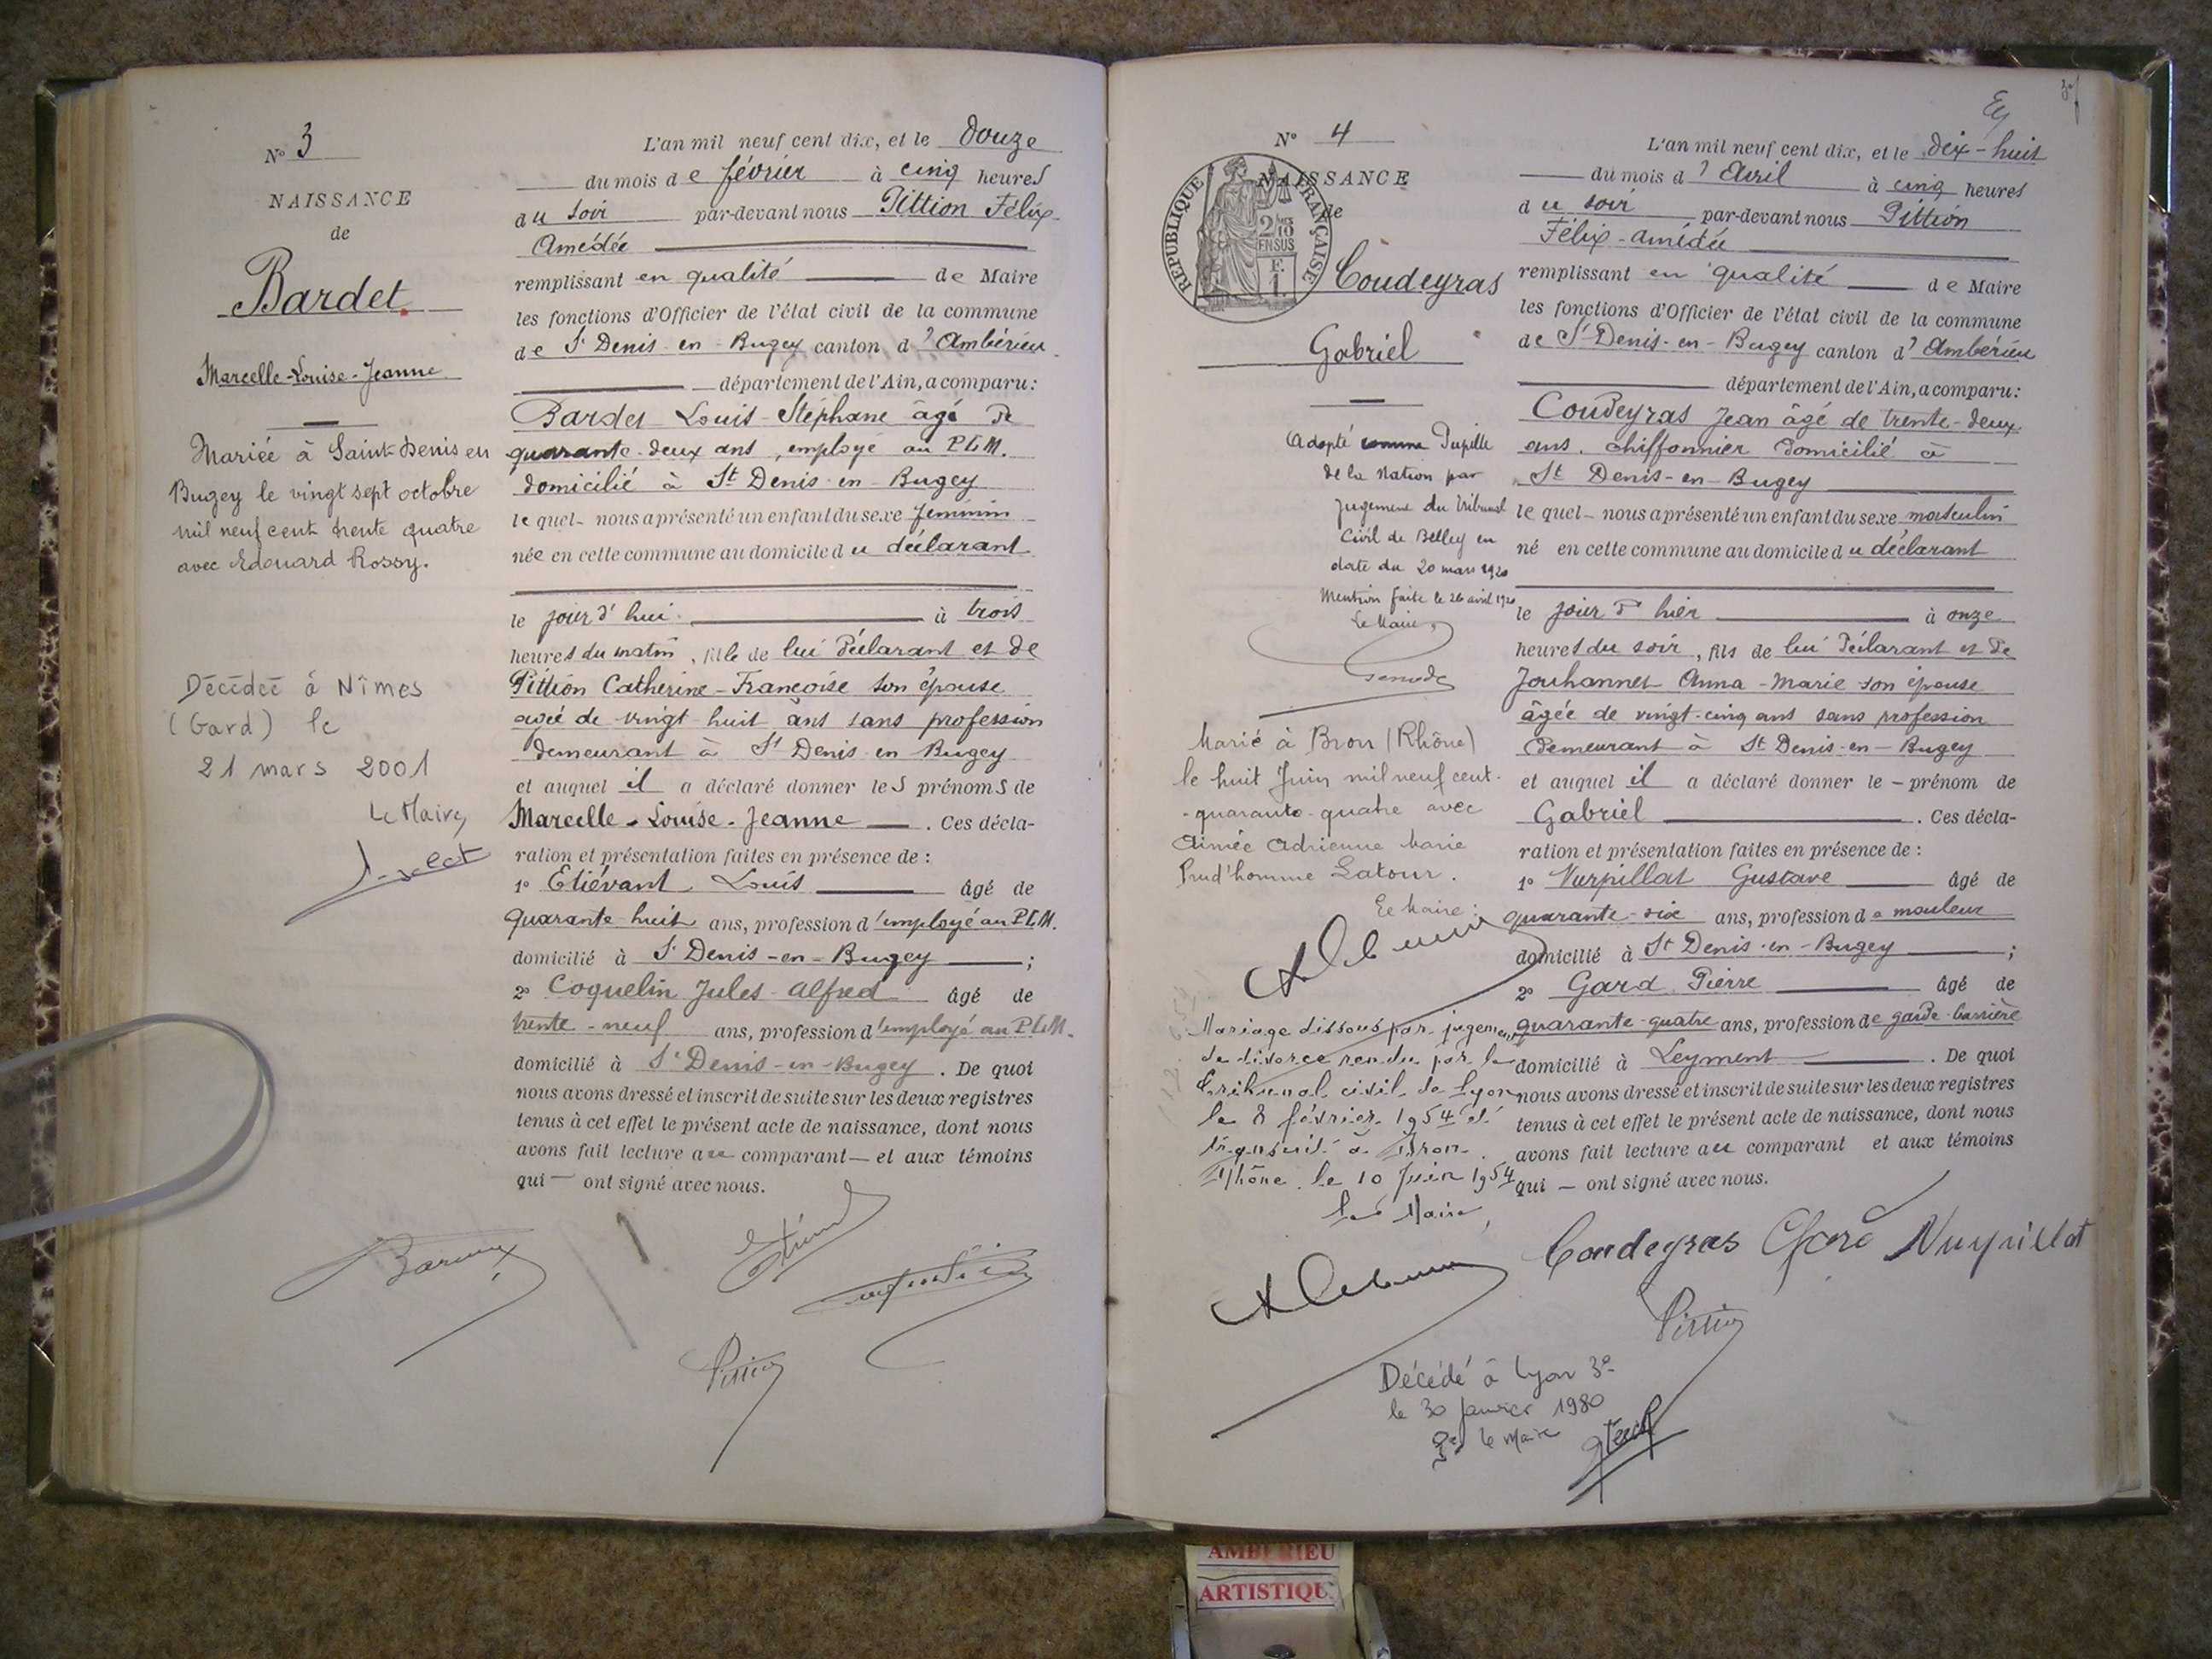 N° 3
NAISSANCE
de
Bardet
Marcelle-Louise-Jeanne
Mariée à Saint-Denis en
Bugey le vingt sept octobre
mil neuf cent trente quatre
avec Edouard Rossy.
Décédée à Nîmes
(Gard) le
21 mars 2001
Le Maire,
L'an mil neuf cent dix, et le douze
du mois de février à cinq heures
du soir par-devant nous Pittion Félix
Amédée
remplissant en qualité de Maire
les fonctions d'Officier de l'état civil de la commune
de St Denis-en-Bugey canton d'Ambérieu
département de l'Ain, a comparu:
Bardet Louis-Stéphane âgé de
quarante-deux ans, employé au P.L.M.
domicilié à St Denis-en-Bugey
lequel nous a présenté un enfant du sexe féminin
née en cette commune au domicile du déclarant
le jour d'hui à trois
heures du matin, fille de lui déclarant et de
Pittion Catherine-Françoise son épouse
agée de vingt huit ans sans profession
demeurant à St Denis-en Bugey
et auquel il a déclaré donner les prénoms de
Marcelle-Louise-Jeanne. Ces décla-
ration et présentation faites en présence de :
1° Etiévant Louis âgé de
quarante-huit ans, profession d'employé au P.L.M.
domicilié à St Denis-en-Bugey ;
2° Coquelin Jules-Alfred âgé de
trente-neuf ans, profession d'employé au P.L.M.
domicilié à St Denis-en-Bugey. De quoi
nous avons dressé et inscrit de suite sur les deux registres
tenus à cet effet le présent acte de naissance, dont nous
avons fait lecture au comparant — et aux témoins
qui — ont signé avec nous.
Pittion
N° 4
NAISSANCE
de
REPUBLIQUE FRANÇAISE
2/10
EN SUS
F.
1.
Coudeyras
Gabriel
Adopté comme Pupille
de la Nation par
jugement du Tribunal
Civil de Belley en
date du 20 mars 1920
Mention faite le 26 avril 1920
Le Maire,
Marié à Bron (Rhône)
le huit Juin mil neuf cent-
-quarante-quatre avec
Aimée Adrienne Marie
Prud'homme Latour.
Le Maire :
Mariage dissous par jugement
de divorce rendu par le
tribunal civil de Lyon
le 8 février 1954 et
transcrit à Bron
Rhône le 10 Juin 1954
Le Maire,
L'an mil neuf cent dix, et le dix-huit
du mois d'Avril à cinq heures
du soir par-devant nous Pittion
Félix-Amédée
remplissant en qualité de Maire
les fonctions d'Officier de l'état civil de la commune
de St Denis-en-Bugey canton d'Ambérieu
département de l'Ain, a comparu:
Coudeyras Jean âgé de trente-deux
ans, chiffonnier domicilié à
St Denis-en-Bugey
lequel nous a présenté un enfant du sexe masculin
né en cette commune au domicile du déclarant
le jour d'hier à onze
heures du soir, fils de lui déclarant et de
Jouhannet Anna-Marie son épouse
âgée de vingt-cinq ans sans profession
demeurant à St Denis-en-Bugey
et auquel il a déclaré donner le — prénom de
Gabriel. Ces décla-
ration et présentation faites en présence de :
1° Vurpillat Gustave âgé de
quarante-six ans, profession de mouleur
domicilié à St Denis-en-Bugey ;
2° Gard Pierre âgé de
quarante-quatre ans, profession de garde-barrière
domicilié à Leyment. De quoi
nous avons dressé et inscrit de suite sur les deux registres
tenus à cet effet le présent acte de naissance, dont nous
avons fait lecture au comparant et aux témoins
qui — ont signé avec nous.
Coudeyras Gard Vurpillat
Pittion
Décédé à Lyon 3e
le 30 janvier 1980
le Maire
AMBERIEU
ARTISTIQU